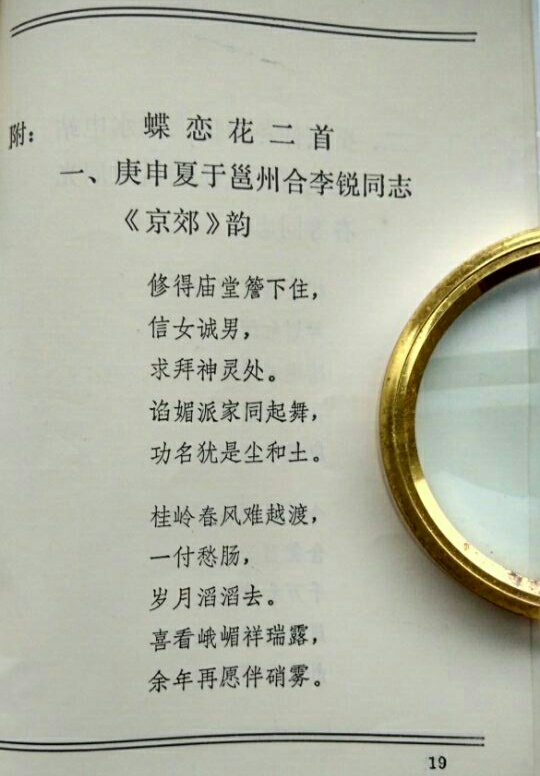 附:
蝶恋花二首
一、庚申夏于邕州合李锐同志
《京郊》韵
修得庙堂簷下住,
信女诚男,
求拜神灵处。
谄媚派家同起舞,
功名犹是尘和土。
桂岭春风难越渡,
一付愁肠,
岁月滔滔去。
喜看峨嵋祥瑞露,
余年再愿伴硝雾。
19